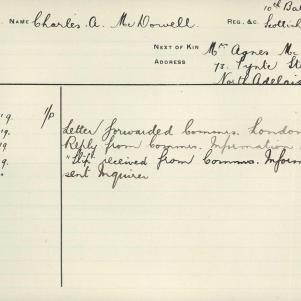 10th Bat
NAME Charles. A. McDowell. REG. &C. Scottish
NEXT OF KIN Mrs Agnes Mc
ADDRESS 73. Tynte St
North Adelai
19. 1/p Letter forwarded Comms. London
19. Reply from Commrs. Information
19 "Slip" received from Commrs. Inform
19. sent Inquirer